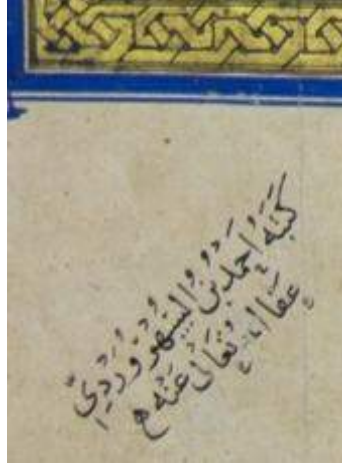 كَتَبَهُ اَحْمَدُ بْنُ السُّهْرَوَرْدِيِّ
عَفَا اللهُ تَعَالٰى عَنْهُ